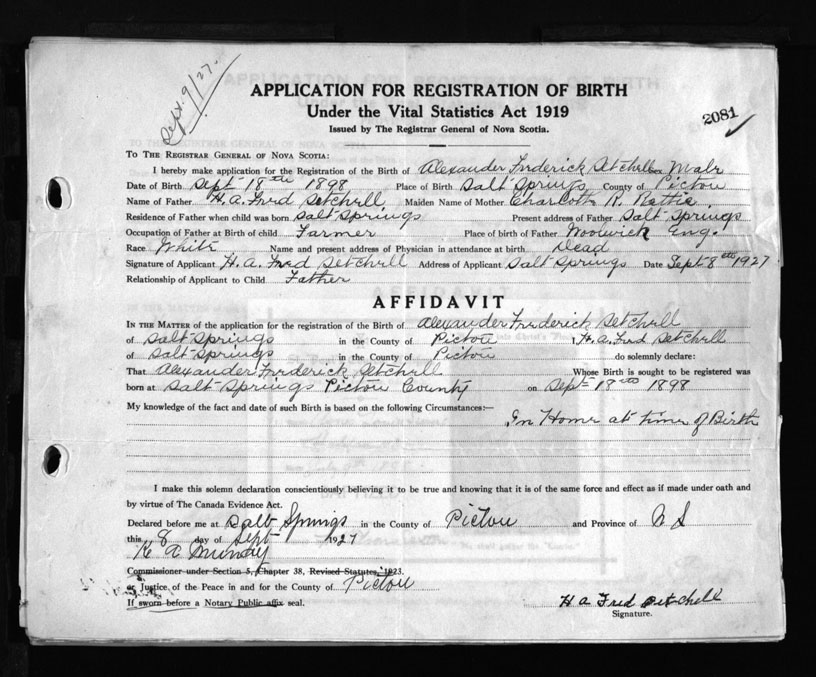 Sept. 9/27.
APPLICATION FOR REGISTRATION OF BIRTH
Under the Vital Statistics Act 1919
Issued by The Registrar General of Nova Scotia.
2081
TO THE REGISTRAR GENERAL OF NOVA SCOTIA:
I hereby make application for the Registration of the Birth of Alexander Frederick Setchell Male
Date of Birth Sept 18th 1898 Place of Birth Salt Springs County of Pictou
Name of Father H. A. Fred Setchell Maiden Name of Mother Charlotte R. Rattie
Residence of Father when child was born Salt Springs Present address of Father Salt Springs
Occupation of Father at Birth of child Farmer Place of birth of Father Woolwich Eng.
Race White Name and present address of Physician in attendance at birth Dead
Signature of Applicant H. A. Fred Setchell Address of Applicant Salt Springs Date Sept 8th 1927
Relationship of Applicant to Child Father
AFFIDAVIT
IN THE MATTER of the application for the registration of the Birth of Alexander Frederick Setchell
of Salt Springs in the County of Pictou I, H. A. Fred Setchell
of Salt Springs in the County of Pictou do solemnly declare:
That Alexander Frederick Setchell Whose Birth is sought to be registered was
born at Salt Springs Pictou County on Sept 18th 1898
My knowledge of the fact and date of such Birth is based on the following Circumstances:—
In Home at time of Birth
I make this solemn declaration conscientiously believing it to be true and knowing that it is of the same force and effect as if made under oath and
by virtue of The Canada Evidence Act.
Declared before me at Salt Springs in the County of Pictou and Province of N S
this 8 day of Sept 1927
A Munday
Commissioner under Section 5, Chapter 38, Revised Statutes, 1923.
or Justice of the Peace in and for the County of Pictou
If sworn before a Notary Public affix seal.
H A Fred Setchell
Signature.